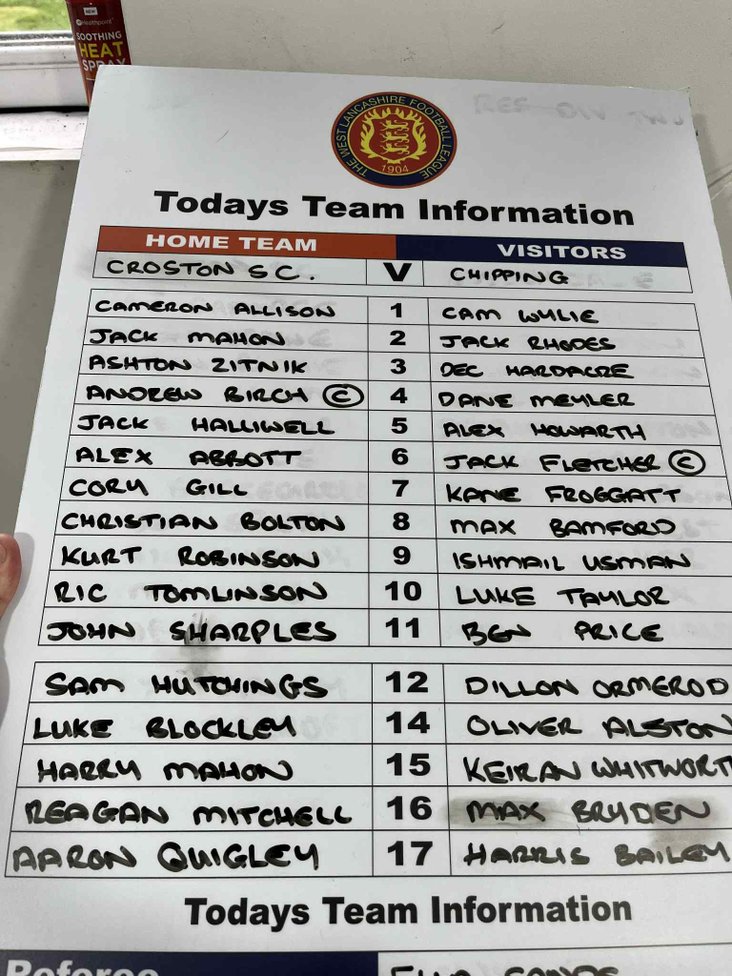 NEW
Healthpoint
SOOTHING
HEAT
SPRAY
THE WEST LANCASHIRE FOOTBALL LEAGUE
1904
Todays Team Information
HOME TEAM VISITORS
CROSTON S.C. V CHIPPING
CAMERON ALLISON 1 CAM WYLIE
JACK MAHON 2 JACK RHODES
ASHTON ZITNIK 3 DEC HARDACRE
ANDREW BIRCH C 4 DANE MEYLER
JACK HALLIWELL 5 ALEX HOWARTH
ALEX ABBOTT 6 JACK FLETCHER C
CORY GILL 7 KANE FROGGATT
CHRISTIAN BOLTON 8 MAX BAMFORD
KURT ROBINSON 9 ISHMAIL USMAN
RIC TOMLINSON 10 LUKE TAYLOR
JOHN SHARPLES 11 BEN PRICE
SAM HUTCHINGS 12 DILLON ORMEROD
LUKE BLOCKLEY 14 OLIVER ALSTON
HARRY MAHON 15 KEIRAN WHITWORT
REAGAN MITCHELL 16 MAX BRYDEN
AARON QUIGLEY 17 HARRIS BAILEY
Todays Team Information
Referee